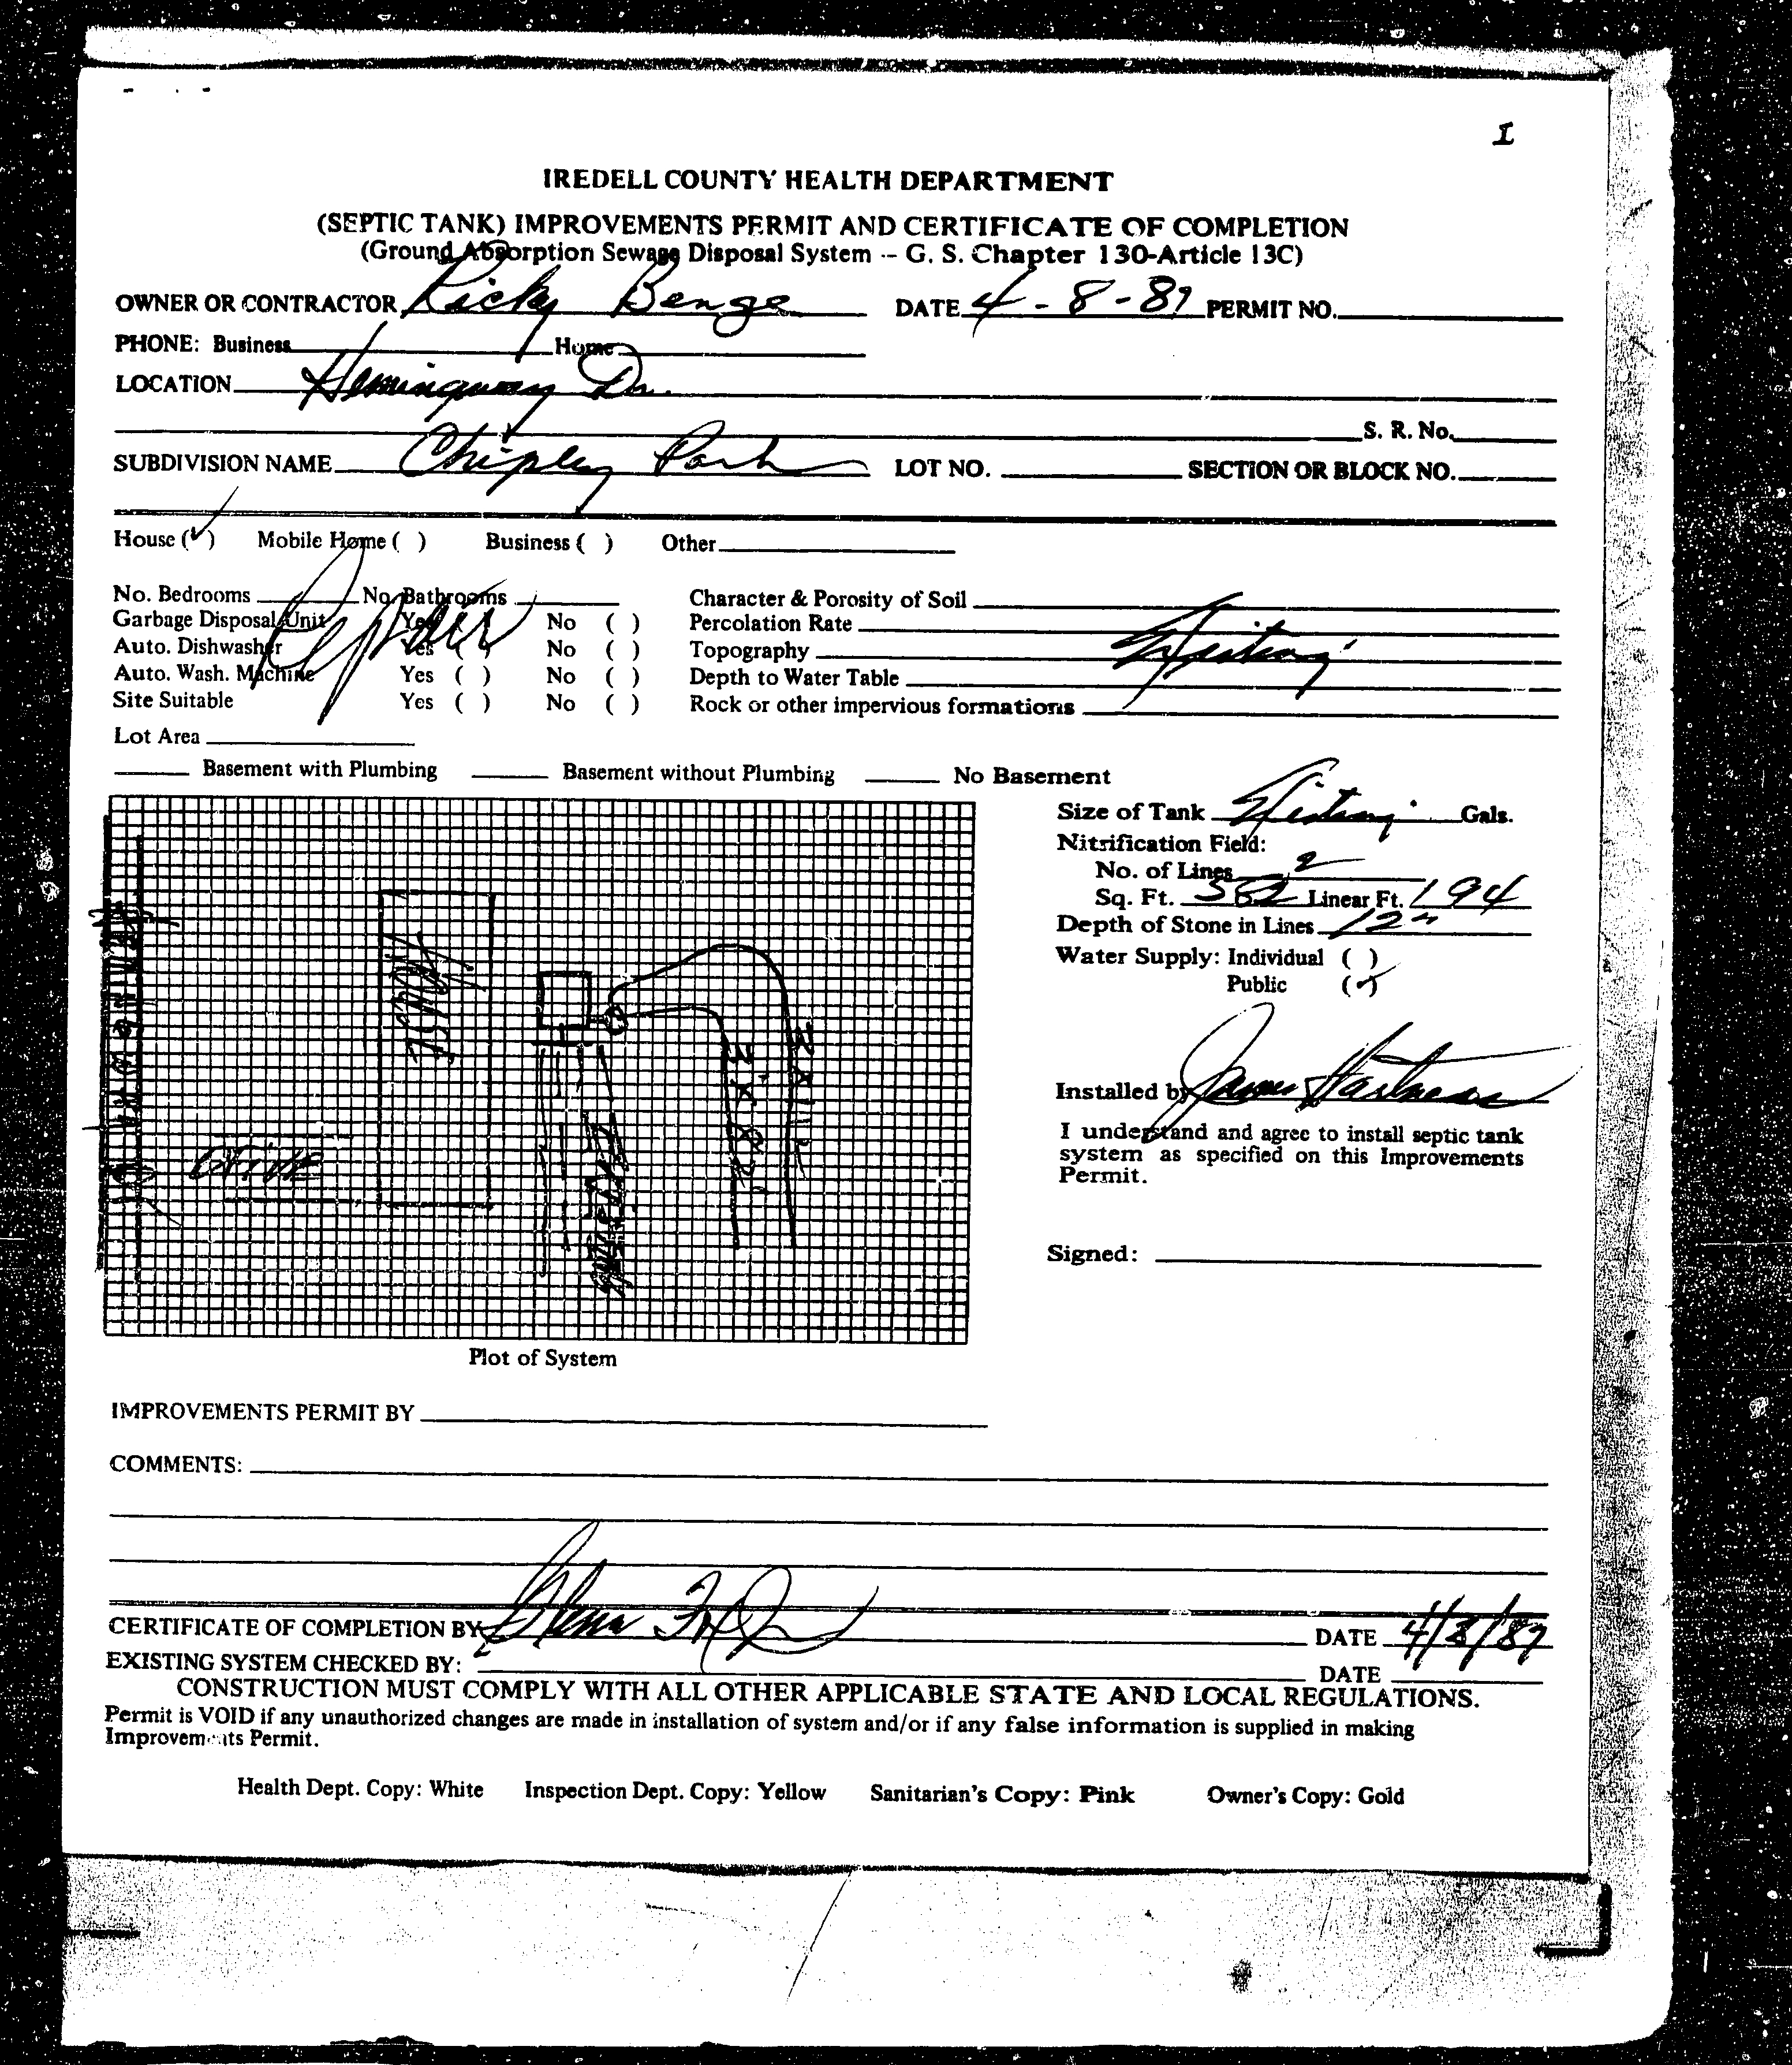 I
IREDELL COUNTY HEALTH DEPARTMENT
(SEPTIC TANK) IMPROVEMENTS PERMIT AND CERTIFICATE OF COMPLETION
(Ground Absorption Sewage Disposal System -- G. S. Chapter 130-Article 13C)
OWNER OR CONTRACTOR Ricky Benge DATE 4-8-87 PERMIT NO.
PHONE: Business Home
LOCATION Hemingway Dr.
S. R. No.
SUBDIVISION NAME Chipley Park LOT NO. SECTION OR BLOCK NO.
House (✓) Mobile Home ( ) Business ( ) Other
No. Bedrooms No. Bathrooms Character & Porosity of Soil
Garbage Disposal Unit Yes ( ) No ( ) Percolation Rate
Repair Existing
Auto. Dishwasher Yes ( ) No ( ) Topography
Auto. Wash. Machine Yes ( ) No ( ) Depth to Water Table
Site Suitable Yes ( ) No ( ) Rock or other impervious formations
Lot Area
Basement with Plumbing Basement without Plumbing No Basement
Size of Tank Existing Gals.
Nitrification Field:
No. of Lines 2
Sq. Ft. 582 Linear Ft. 194
Depth of Stone in Lines 12"
Water Supply: Individual ( )
Public (✓)
Installed by James Hartness
I understand and agree to install septic tank
system as specified on this Improvements
Permit.
Signed:
HOUSE
DRIVE
Hemingway
Existing
Plot of System
IMPROVEMENTS PERMIT BY
COMMENTS:
CERTIFICATE OF COMPLETION BY DATE 4/8/87
EXISTING SYSTEM CHECKED BY: DATE
CONSTRUCTION MUST COMPLY WITH ALL OTHER APPLICABLE STATE AND LOCAL REGULATIONS.
Permit is VOID if any unauthorized changes are made in installation of system and/or if any false information is supplied in making
Improvements Permit.
Health Dept. Copy: White Inspection Dept. Copy: Yellow Sanitarian's Copy: Pink Owner's Copy: Gold